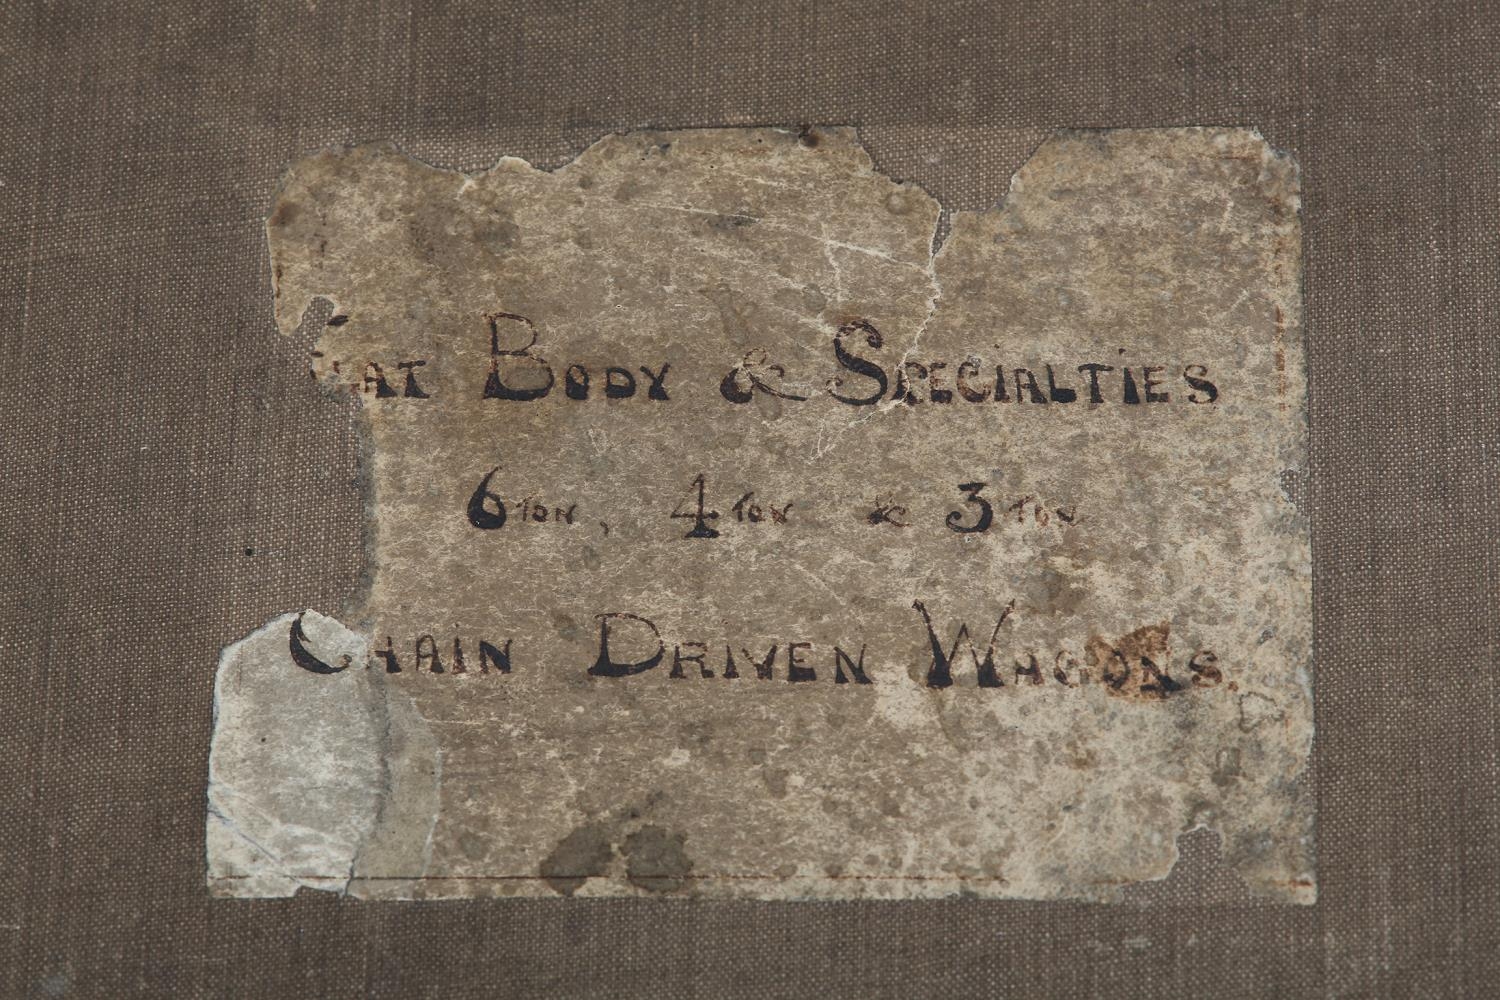 Flat Body & Specialties
6 Ton, 4 Ton & 3 Ton
Chain Driven Wagons.